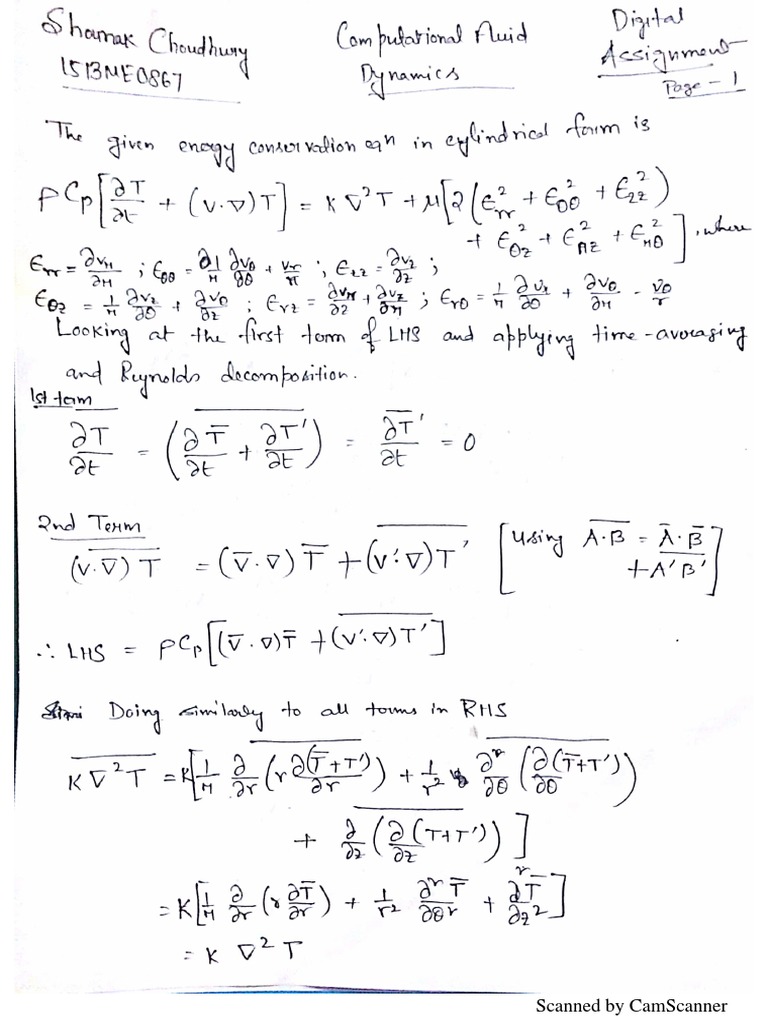 Shamak Choudhury
15BME0867
Computational Fluid
Dynamics
Digital
Assignment
Page - 1
The given energy conservation eqn in cylindrical form is
ρCp[∂T/∂t + (v·∇)T] = K∇²T + μ[2(ϵ²rr + ϵ²θθ + ϵ²zz)
+ ϵ²θz + ϵ²rz + ϵ²rθ], where
ϵrr = ∂vr/∂r ; ϵθθ = 1/r ∂vθ/∂θ + vr/r ; ϵzz = ∂vz/∂z ;
ϵθz = 1/r ∂vz/∂θ + ∂vθ/∂z ; ϵrz = ∂vr/∂z + ∂vz/∂r ; ϵrθ = 1/r ∂vr/∂θ + ∂vθ/∂r - vθ/r
Looking at the first term of LHS and applying time-averaging
and Reynolds decomposition.
1st term
∂T/∂t = (∂T̅/∂t + ∂T'/∂t) = ∂T̅'/∂t = 0
2nd Term
(v·∇)T = (v̅·∇)T̅ + (v'·∇)T' [Using A·B = A̅·B̅ + A'B']
∴ LHS = ρCp[(v̅·∇)T̅ + (v'·∇)T']
Doing similarly to all terms in RHS
K∇²T = K[1/r ∂/∂r (r ∂(T̅+T')/∂r) + 1/r² ∂/∂θ (∂(T̅+T')/∂θ)
+ ∂/∂z (∂(T+T')/∂z)]
= K[1/r ∂/∂r (r ∂T̅/∂r) + 1/r² ∂²T̅/∂θ² + ∂²T̅/∂z²]
= K ∇²T
Scanned by CamScanner